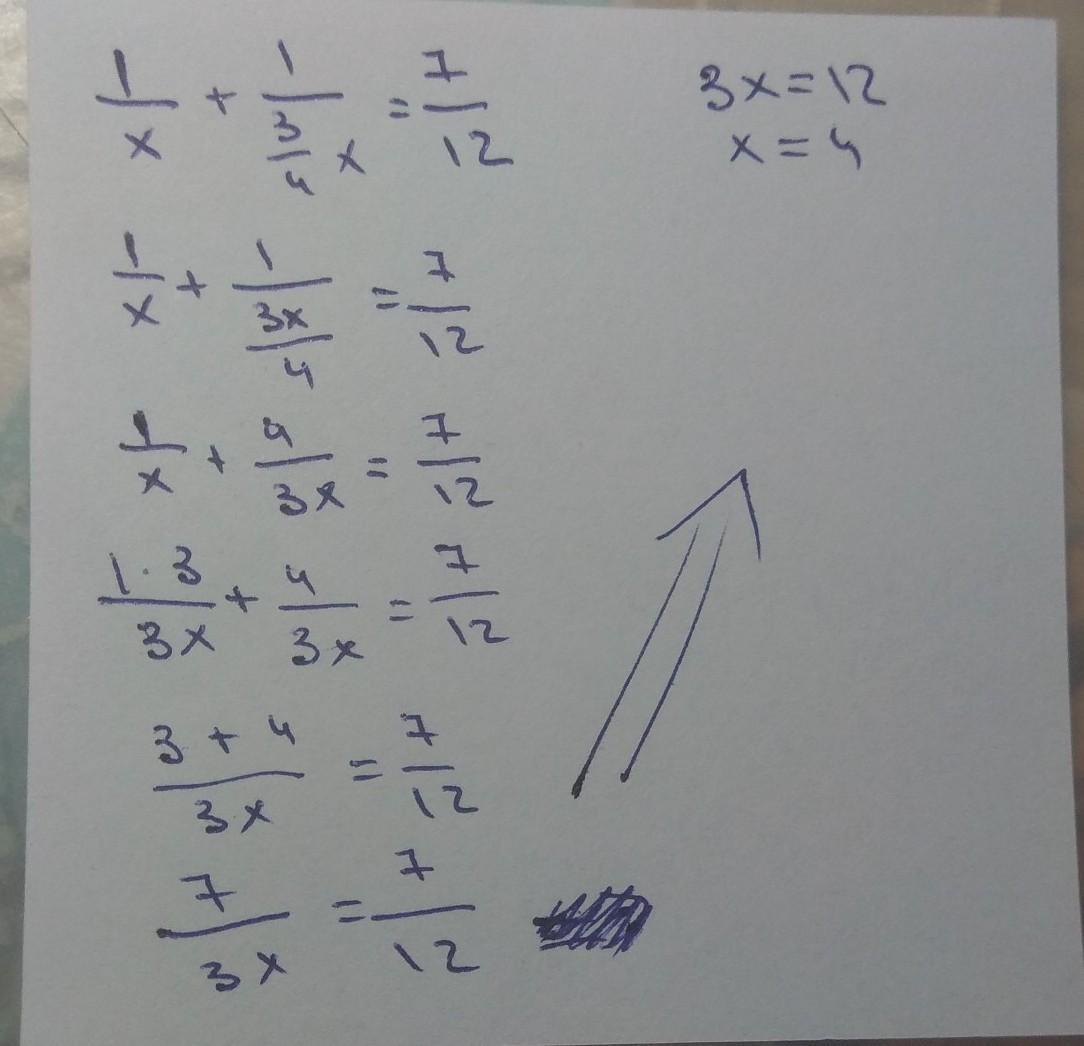 1/x + 1/(3/4 x) = 7/12
1/x + 1/(3x/4) = 7/12
1/x + 4/3x = 7/12
1·3/3x + 4/3x = 7/12
3+4/3x = 7/12
7/3x = 7/12
3x=12
x=4